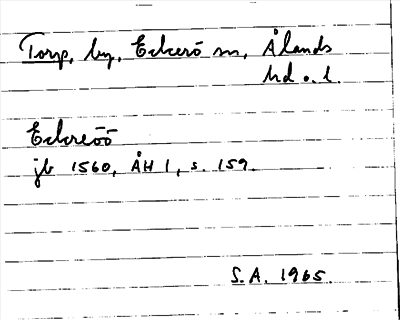 Torp, by, Eckerö sn, Ålands
hd o. l.
Eckreöö
jb 1560, ÅH 1, s. 159.
S.A. 1965.